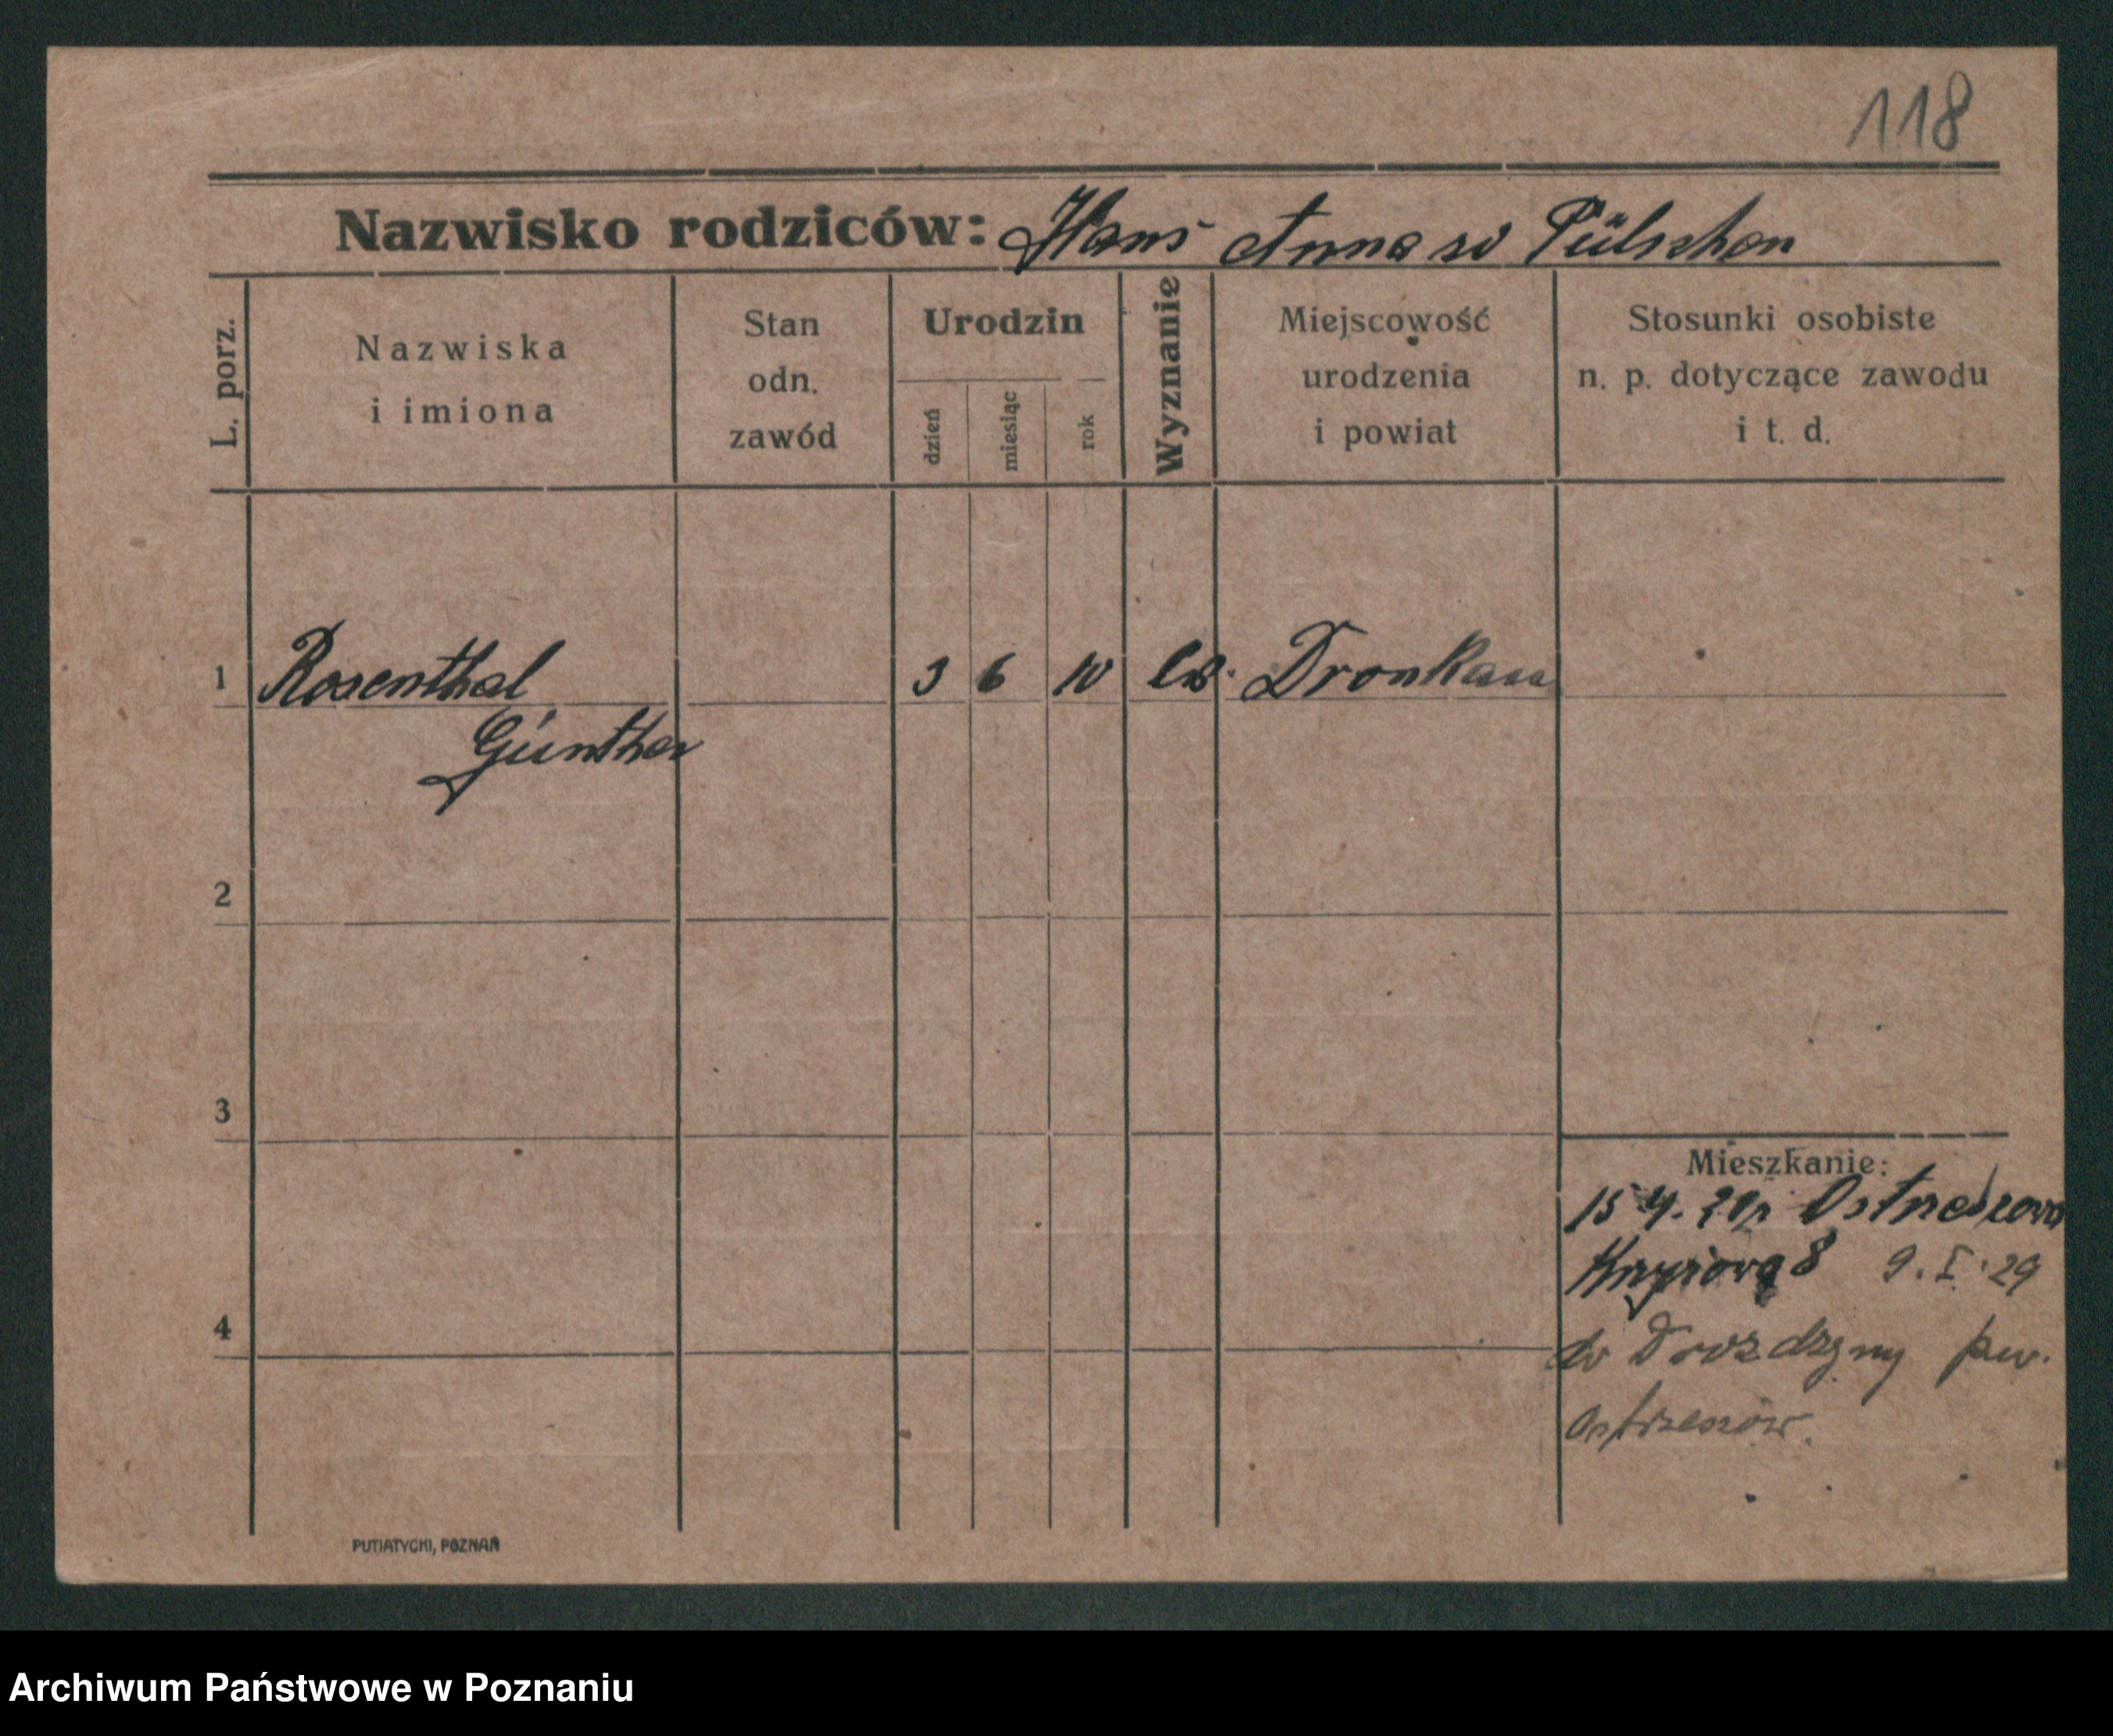 118
Nazwisko rodziców: Hans Anna w Pülschen
L. porz.
Nazwiska
i imiona
Stan
odn.
zawód
Urodzin
dzień
miesiąc
rok
Wyznanie
Miejscowość
urodzenia
i powiat
Stosunki osobiste
n. p. dotyczące zawodu
i t. d.
1 Rosenthal 3 6 10 Ew.
Günther
2
3
4
Mieszkanie:
15 4. Ostrzeszowa
8 9. I. 29
do Drozdzyny pow.
Ostrzeszów.
PUTIATYCKI, POZNAŃ
Archiwum Państwowe w Poznaniu